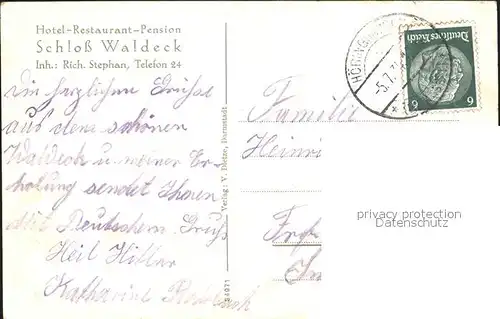 Hotel-Restaurant-Pension
Schloß Waldeck
Inh.: Rich. Stephan, Telefon 24
Die herzlichen Grüße
aus dem schönen
Waldeck u. meiner Er-
holung sendet Ihnen
Mit Deutschem Gruß
Heil Hitler
Katharine
Verlag: V. Dietze, Darmstadt
54071
Familie
Heinri
Fr
In
5.7.
Deutsches Reich
6 6
privacy protection
Datenschutz